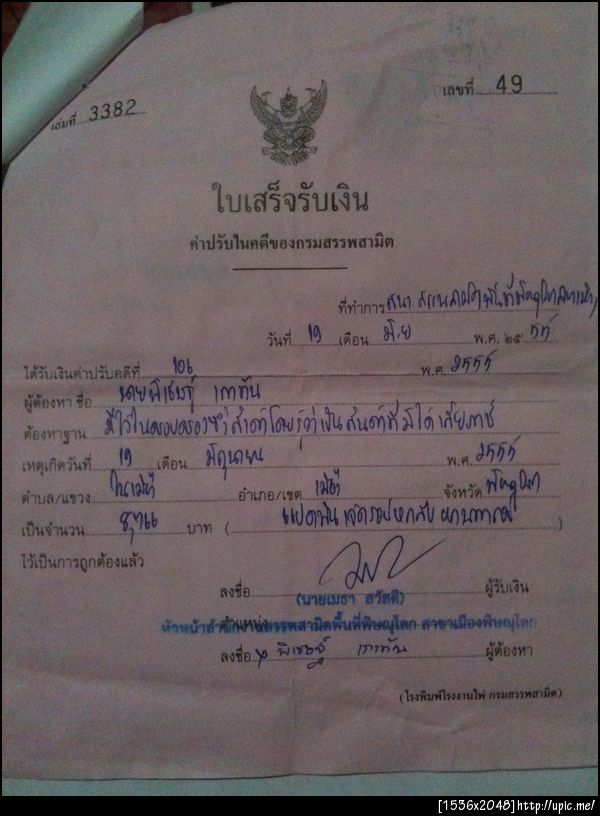 เล่มที่ 3382
เลขที่ 49
ใบเสร็จรับเงิน
ค่าปรับในคดีของกรมสรรพสามิต
ที่ทำการ
วันที่ 19 เดือน มิ.ย พ.ศ. ๒๕ 55
ได้รับเงินค่าปรับคดีที่ 106 พ.ศ. 2555
ผู้ต้องหา ชื่อ นายพิเชษฐ์
ต้องหาฐาน มีไว้ในครอบครองซึ่งสินค้าโดยรู้ว่าเป็นสินค้าที่มิได้เสียภาษี
เหตุเกิดวันที่ 19 เดือน มิถุนายน พ.ศ. 2555
ตำบล/แขวง ในเมือง อำเภอ/เขต เมือง จังหวัด พิษณุโลก
เป็นจำนวน บาท ( )
ไว้เป็นการถูกต้องแล้ว
ลงชื่อ ผู้รับเงิน
(นายเมธา สวัสดี)
ตำแหน่ง
หัวหน้าสำนักงานสรรพสามิตพื้นที่พิษณุโลก สาขาเมืองพิษณุโลก
ลงชื่อ พิเชษฐ์ ผู้ต้องหา
(โรงพิมพ์โรงงานไพ่ กรมสรรพสามิต)
[1536x2048]http://upic.me/